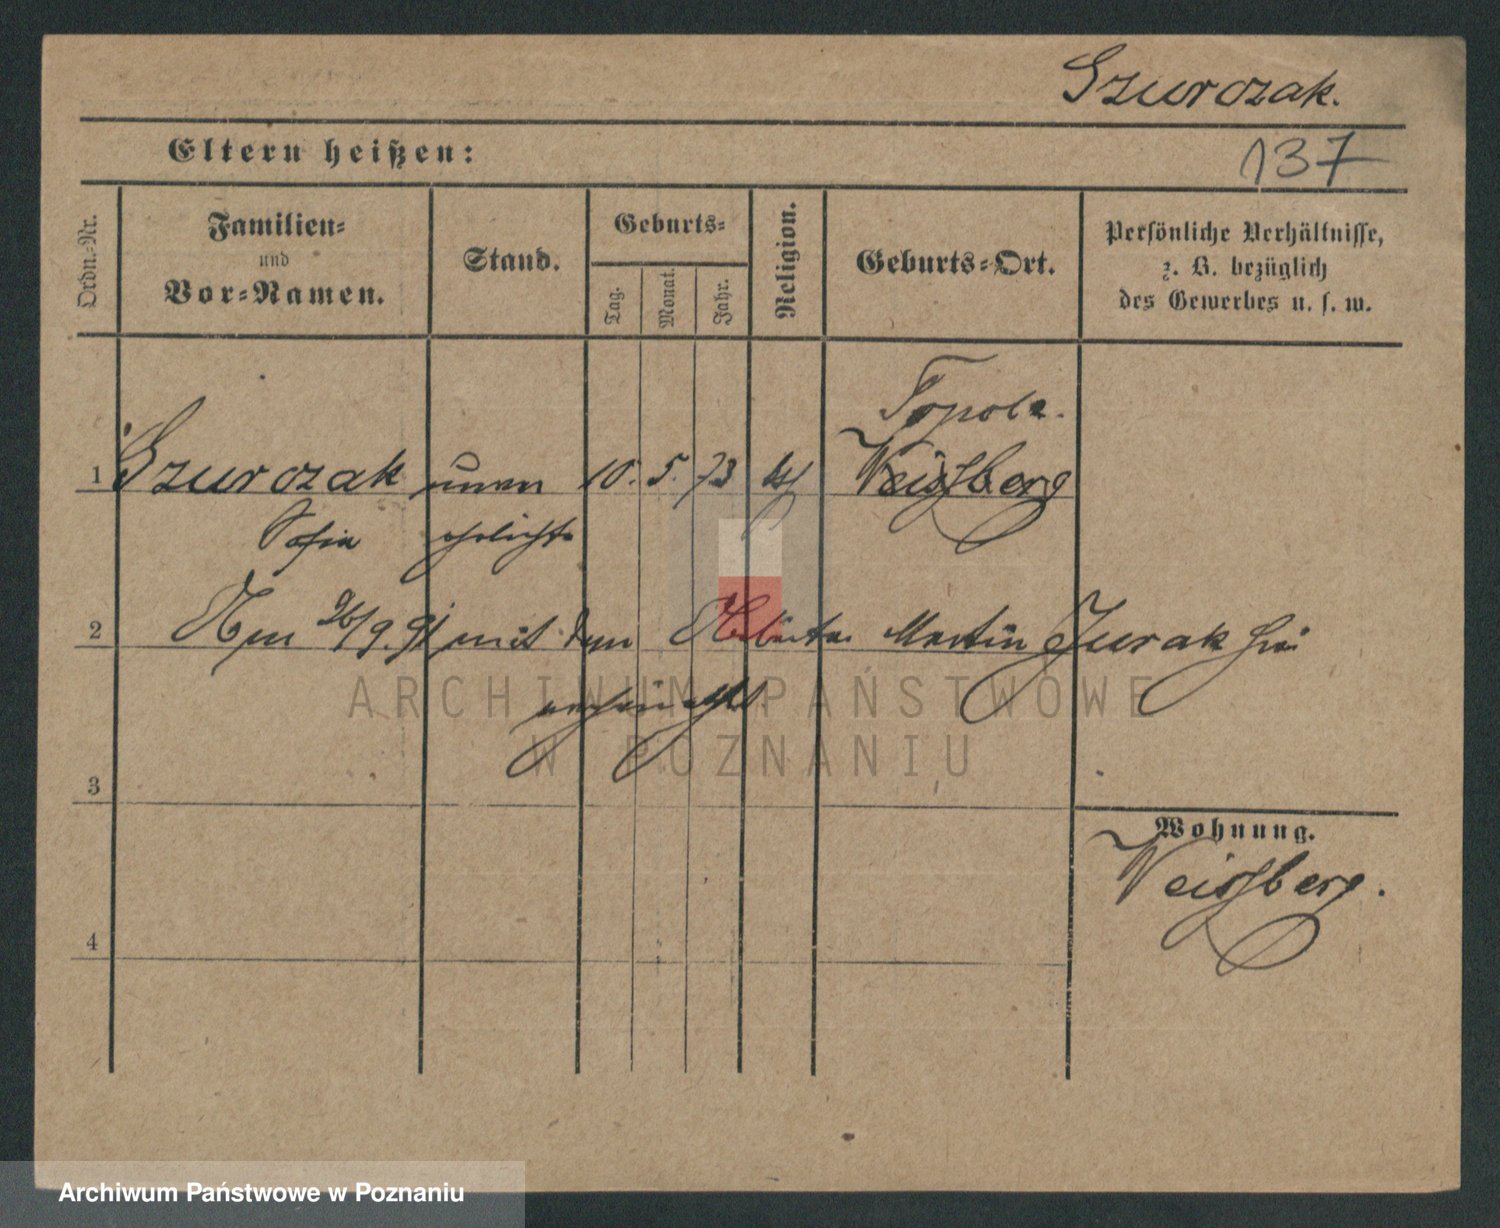 Szurczak.
Eltern heißen:
137
Ordn.-Nr.
Familien-
und
Vor-Namen.
Stand.
Geburts-
Tag.
Monat.
Jahr.
Religion.
Geburts-Ort.
Persönliche Verhältnisse,
z. B. bezüglich
des Gewerbes u. s. w.
Topola.
1 Szurczak unver 10. 5. 73 kath Weissberg
Sofia ehelicht
2 Am 26/9.91 mit dem Arbeiter Martin Jurak hier
ARCHIWUM PAŃSTWOWE
W POZNANIU
3
Wohnung.
Weissberg.
4
Archiwum Państwowe w Poznaniu